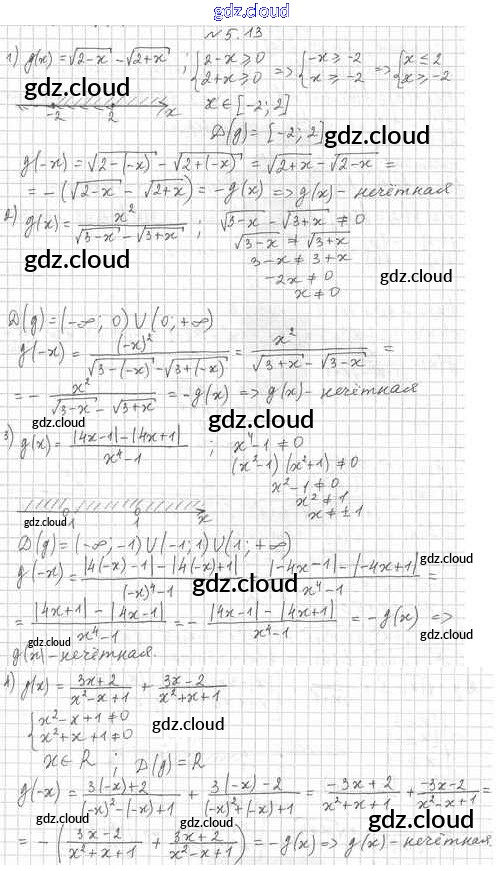 gdz.cloud
№5.13
1) g(x) = √(2-x) - √(2+x) ; {2-x ≥ 0 2+x ≥ 0 => {-x ≥ -2 x ≥ -2 => {x ≤ 2 x ≥ -2
gdz.cloud
gdz.cloud
-2 2 x x ∈ [-2; 2]
D(g) = [-2; 2] gdz.cloud
g(-x) = √(2-(-x)) - √(2+(-x)) = √(2+x) - √(2-x) =
= -(√(2-x) - √(2+x)) = -g(x) => g(x) - нечётная
2) g(x) = x²/(√(3-x) - √(3+x)) ; √(3-x) - √(3+x) ≠ 0
√(3-x) ≠ √(3+x)
gdz.cloud 3-x ≠ 3+x
-2x ≠ 0 gdz.cloud
x ≠ 0
D(g) = (-∞; 0) ∪ (0; +∞)
g(-x) = (-x)²/(√(3-(-x)) - √(3+(-x))) = x²/(√(3+x) - √(3-x)) =
= - x²/(√(3-x) - √(3+x)) = -g(x) => g(x) - нечётная
gdz.cloud gdz.cloud
3) g(x) = (|4x-1| - |4x+1|)/(x⁴-1) ; x⁴-1 ≠ 0
(x²-1)(x²+1) ≠ 0
x²-1 ≠ 0
x² ≠ 1
x ≠ ±1
gdz.cloud
-1 1 x
D(g) = (-∞; -1) ∪ (-1; 1) ∪ (1; +∞)
gdz.cloud
g(-x) = (|4(-x)-1| - |4(-x)+1|)/((-x)⁴-1) = (|-4x-1| - |-4x+1|)/(x⁴-1) =
gdz.cloud
= (|4x+1| - |4x-1|)/(x⁴-1) = - (|4x-1| - |4x+1|)/(x⁴-1) = -g(x) =>
gdz.cloud gdz.cloud
g(x) - нечётная.
4) g(x) = (3x+2)/(x²-x+1) + (3x-2)/(x²+x+1)
{x²-x+1 ≠ 0 x²+x+1 ≠ 0
gdz.cloud
x ∈ R ; D(g) = R
g(-x) = (3(-x)+2)/((-x)²-(-x)+1) + (3(-x)-2)/((-x)²+(-x)+1) = (-3x+2)/(x²+x+1) + (-3x-2)/(x²-x+1) =
gdz.cloud gdz.cloud gdz.cloud
= -((3x-2)/(x²+x+1) + (3x+2)/(x²-x+1)) = -g(x) => g(x) - нечётная.